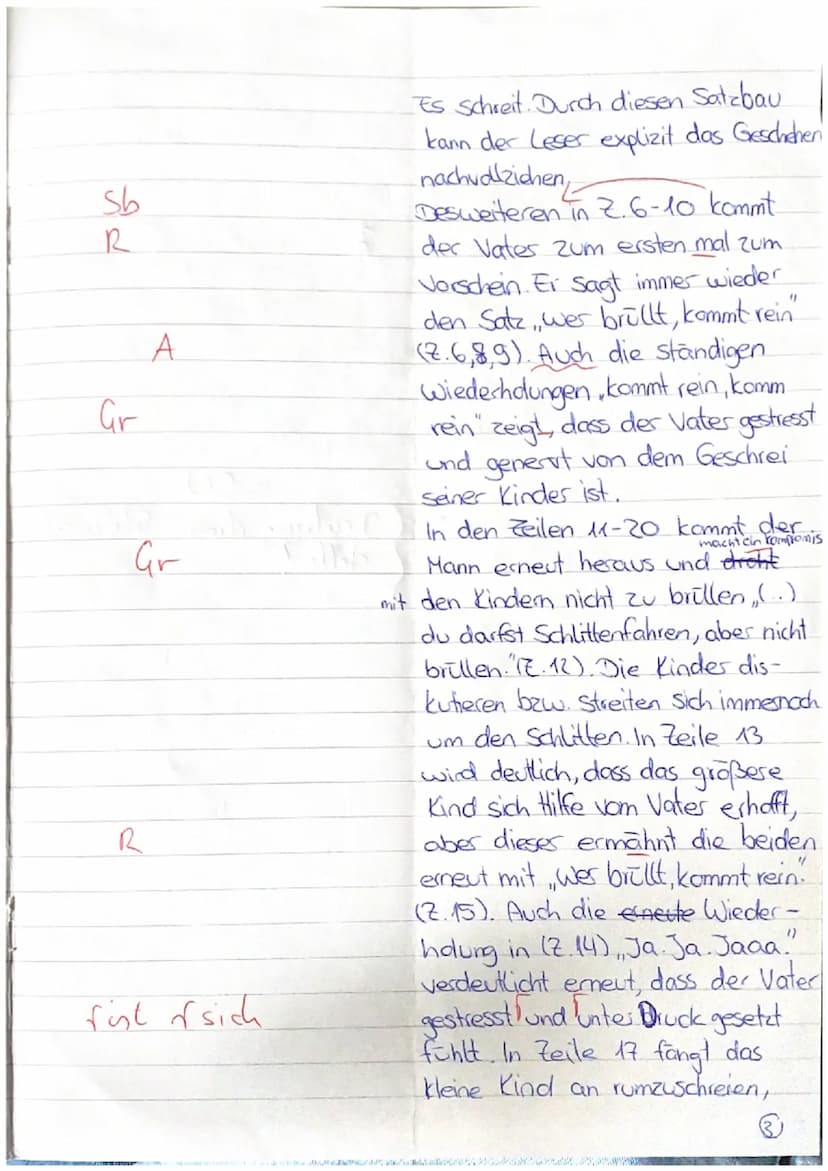 Es schreit. Durch diesen Satzbau
kann der Leser explizit das Geschehen
nachvollziehen.
Sb Desweiteren in Z.6-10 kommt
R der Vater zum ersten mal zum
Vorschein. Er sagt immer wieder
den Satz „wer brüllt, kommt rein"
A (Z.6,8,9). Auch die ständigen
Wiederholungen „kommt rein, komm
Gr rein" zeigt, dass der Vater gestresst
und genervt von dem Geschrei
seiner Kinder ist.
In den Zeilen 11-20 kommt der
macht ein Kompromis
Gr Mann erneut heraus und droht
mit den Kindern nicht zu brüllen „(..)
du darfst Schlittenfahren, aber nicht
brüllen." (Z.12). Die Kinder dis-
kutieren bzw. streiten sich immernoch
um den Schlitten. In Zeile 13
wird deutlich, dass das größere
Kind sich Hilfe vom Vater erhofft,
R aber dieser ermähnt die beiden
erneut mit „Wer brüllt, kommt rein."
(Z.15). Auch die erneute Wieder-
holung in (Z.14) „Ja. Ja. Jaaa."
verdeutlicht erneut, dass der Vater
ist sich gestresst und unter Druck gesetzt
fühlt. In Zeile 17 fängt das
kleine Kind an rumzuschreien,
3